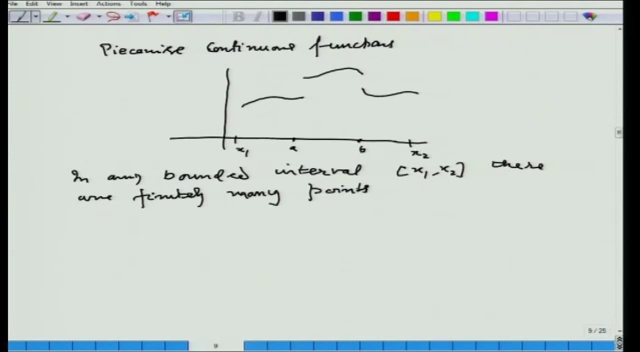 File Edit View Insert Actions Tools Help
Piecewise Continuous functions
x1 a b x2
In any bounded interval [x1, x2] there
are finitely many points
9 / 25
9